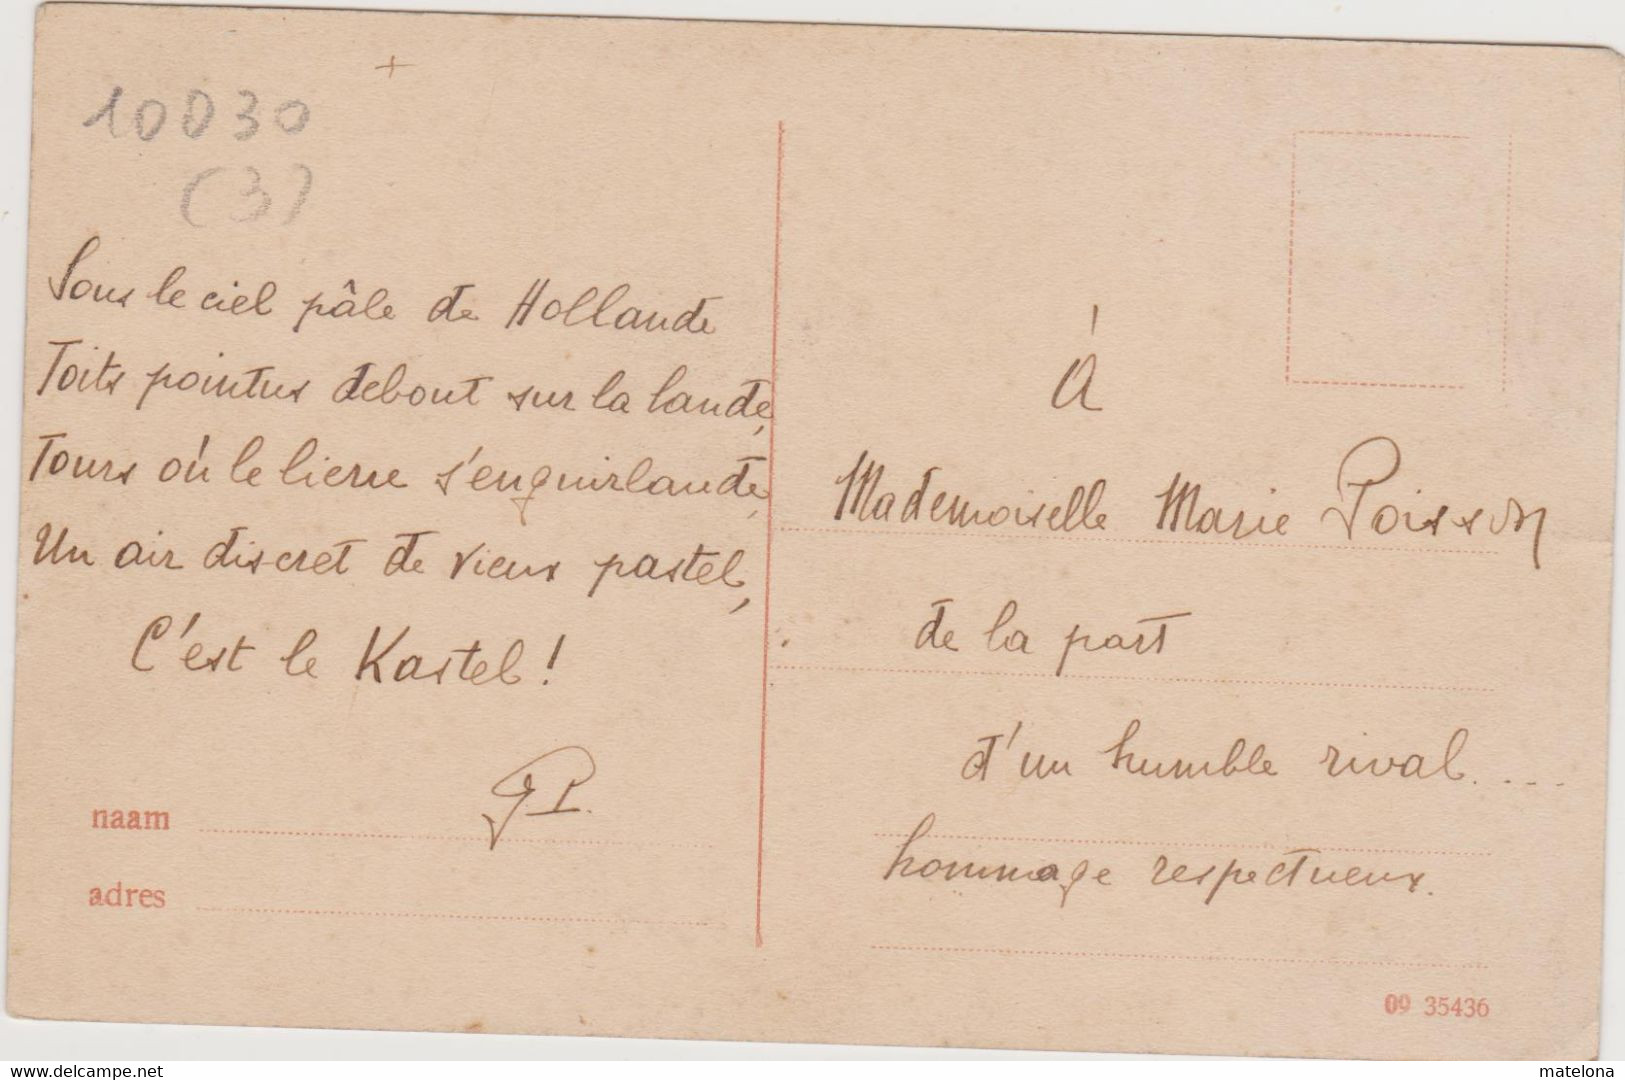 10D30
(3)
Sous le ciel pâle de Hollande
Toits pointus debout sur la lande,
Tours où le lierre s'enguirlande,
Un air discret de vieux pastel,
C'est le Kastel !
GP.
naam
adres
À
Mademoiselle Marie Poisson
de la part
d'un humble rival....
hommage respectueux.
09 35436
www.delcampe.net
matelona